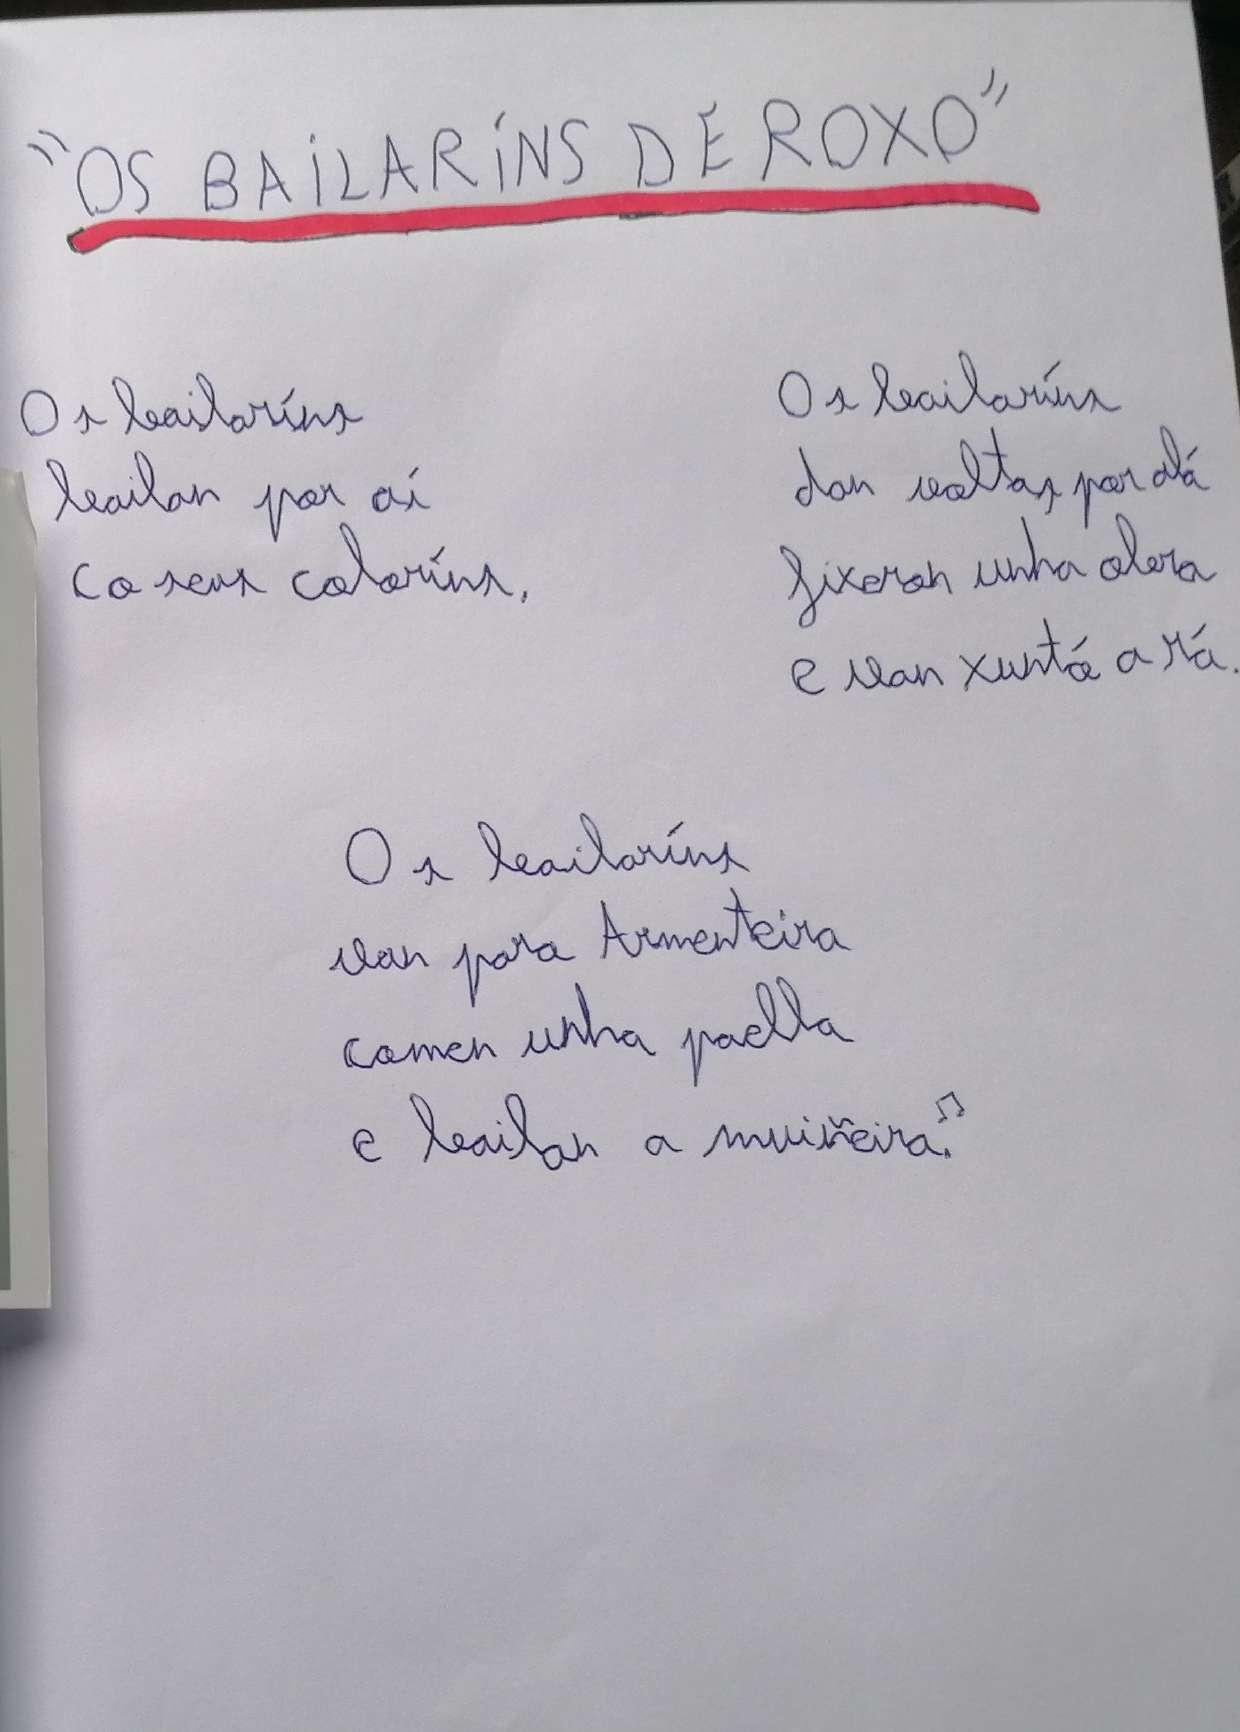 "OS BAILARÍNS DE ROXO"
Os bailaríns
bailan por aí
co seus coloríns.
Os bailaríns
dan voltas por alá
fixeron unha obra
e van xunto a rá.
Os bailaríns
van para Armenteira
comen unha paella
e bailan a muiñeira.